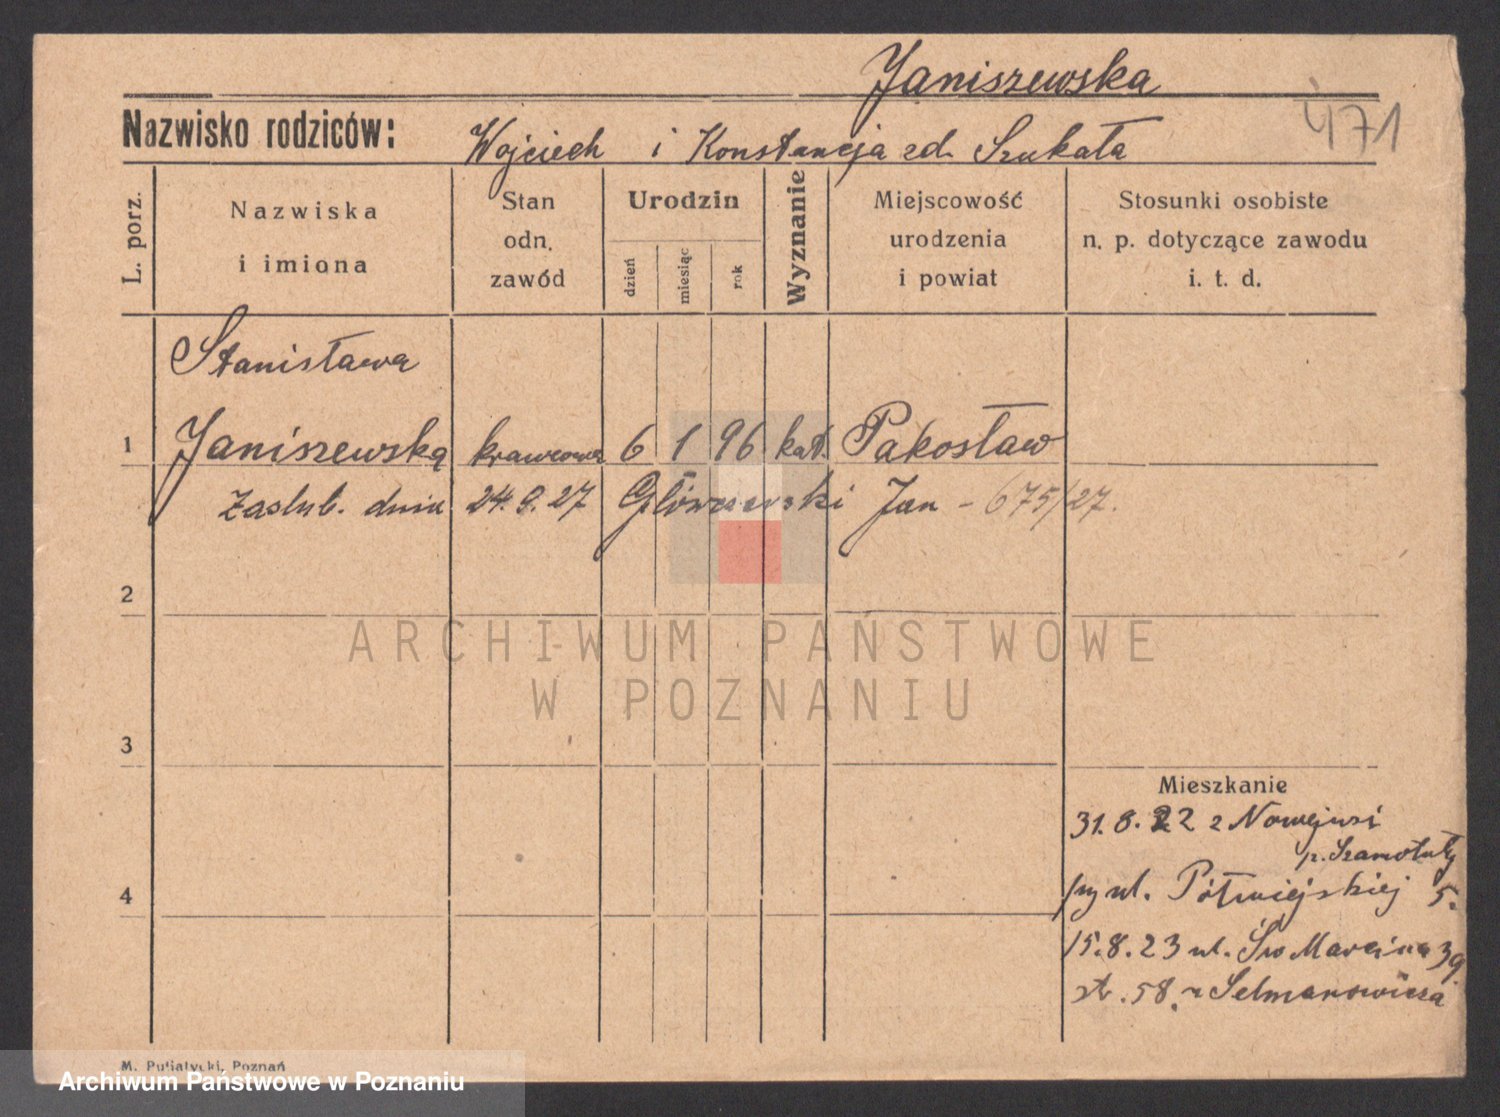 Janiszewska
471
Nazwisko rodziców: Wojciech i Konstancja zd. Szukała
L. porz.
Nazwiska i imiona
Stan odn. zawód
Urodzin
dzień miesiąc rok
Wyznanie
Miejscowość urodzenia i powiat
Stosunki osobiste n. p. dotyczące zawodu i. t. d.
Stanisława
1 Janiszewska krawcowa 6 1 96 kat. Pakosław
Zaślub. dnia 24.9.27 Jan - 675/27.
2
ARCHIWUM PAŃSTWOWE
W POZNANIU
3
Mieszkanie
31.8.22 z Nowejwsi
p. Szamotuły
ul. Półwiejskiej 5.
4
15.8.23 ul. Św Marcina 39
st. 58. Selmanowicza
M. Putiatycki, Poznań
Archiwum Państwowe w Poznaniu